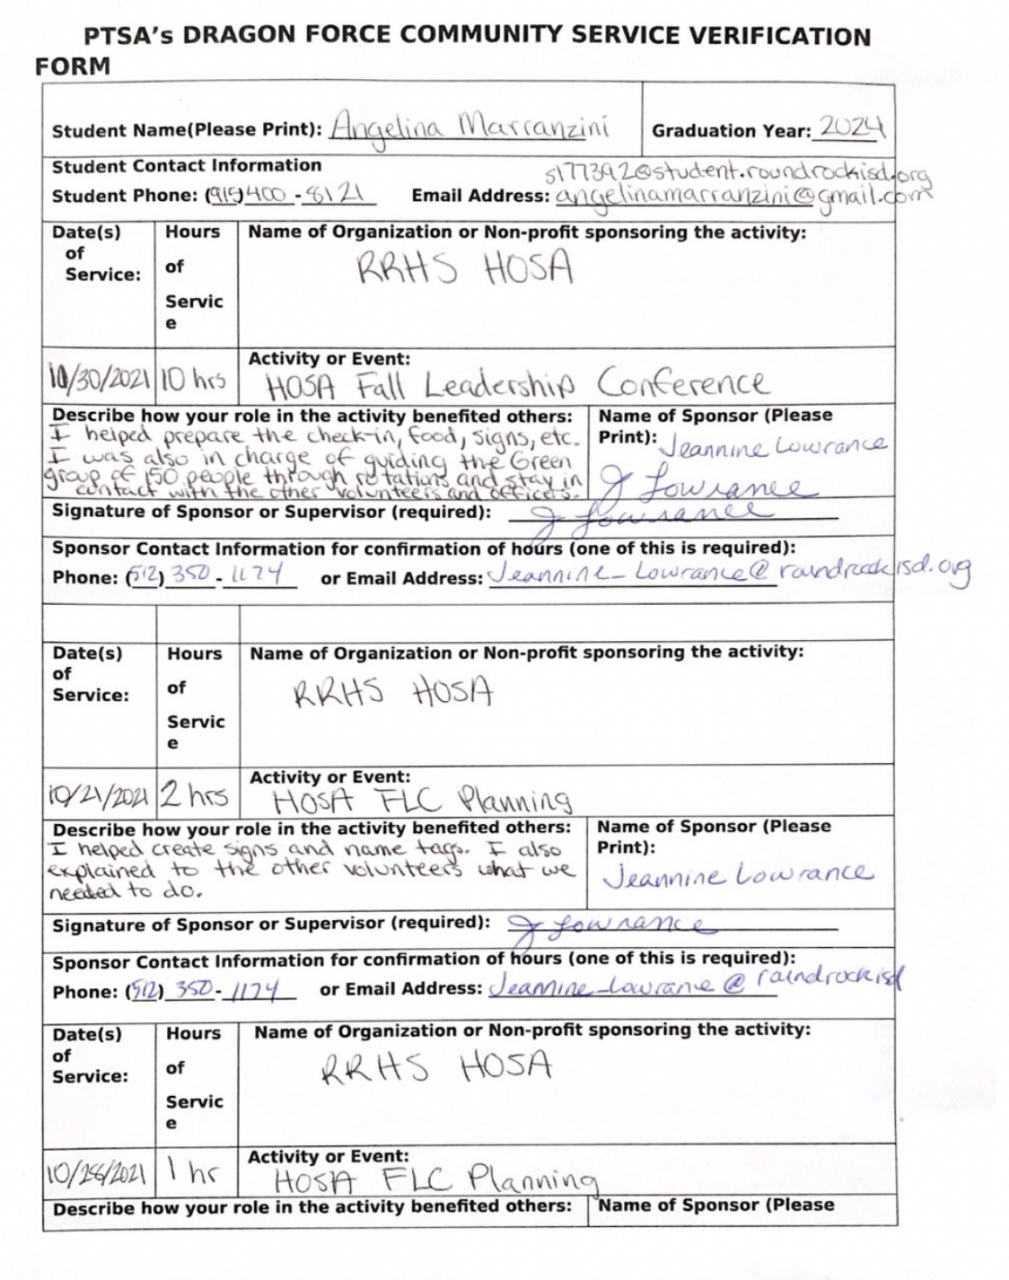 PTSA's DRAGON FORCE COMMUNITY SERVICE VERIFICATION
FORM
Student Name(Please Print): Angelina Marranzini
Graduation Year: 2024
Student Contact Information
s177392@student.roundrockisd.org
Student Phone: (919)400-8121 Email Address: angelinamarranzini@gmail.com
Date(s)
of
Service:
Hours
of
Servic
e
Name of Organization or Non-profit sponsoring the activity:
RRHS HOSA
10/30/2021
10 hrs
Activity or Event:
HOSA Fall Leadership Conference
Describe how your role in the activity benefited others:
I helped prepare the check-in, food, signs, etc.
I was also in charge of guiding the Green
group of 150 people through rotations and stay in
contact with the other volunteers and officers.
Name of Sponsor (Please
Print): Jeannine Lowrance
J Lowrance
Signature of Sponsor or Supervisor (required): J Lowrance
Sponsor Contact Information for confirmation of hours (one of this is required):
Phone: (512) 350-1174 or Email Address: Jeannine_Lowrance@roundrockisd.org
Date(s)
of
Service:
Hours
of
Servic
e
Name of Organization or Non-profit sponsoring the activity:
RRHS HOSA
10/21/2021
2 hrs
Activity or Event:
HOSA FLC Planning
Describe how your role in the activity benefited others:
I helped create signs and name tags. I also
explained to the other volunteers what we
needed to do.
Name of Sponsor (Please
Print):
Jeannine Lowrance
Signature of Sponsor or Supervisor (required): J Lowrance
Sponsor Contact Information for confirmation of hours (one of this is required):
Phone: (512) 350-1174 or Email Address: Jeannine_Lowrance@roundrockisd
Date(s)
of
Service:
Hours
of
Servic
e
Name of Organization or Non-profit sponsoring the activity:
RRHS HOSA
10/28/2021
1 hr
Activity or Event:
HOSA FLC Planning
Describe how your role in the activity benefited others:
Name of Sponsor (Please